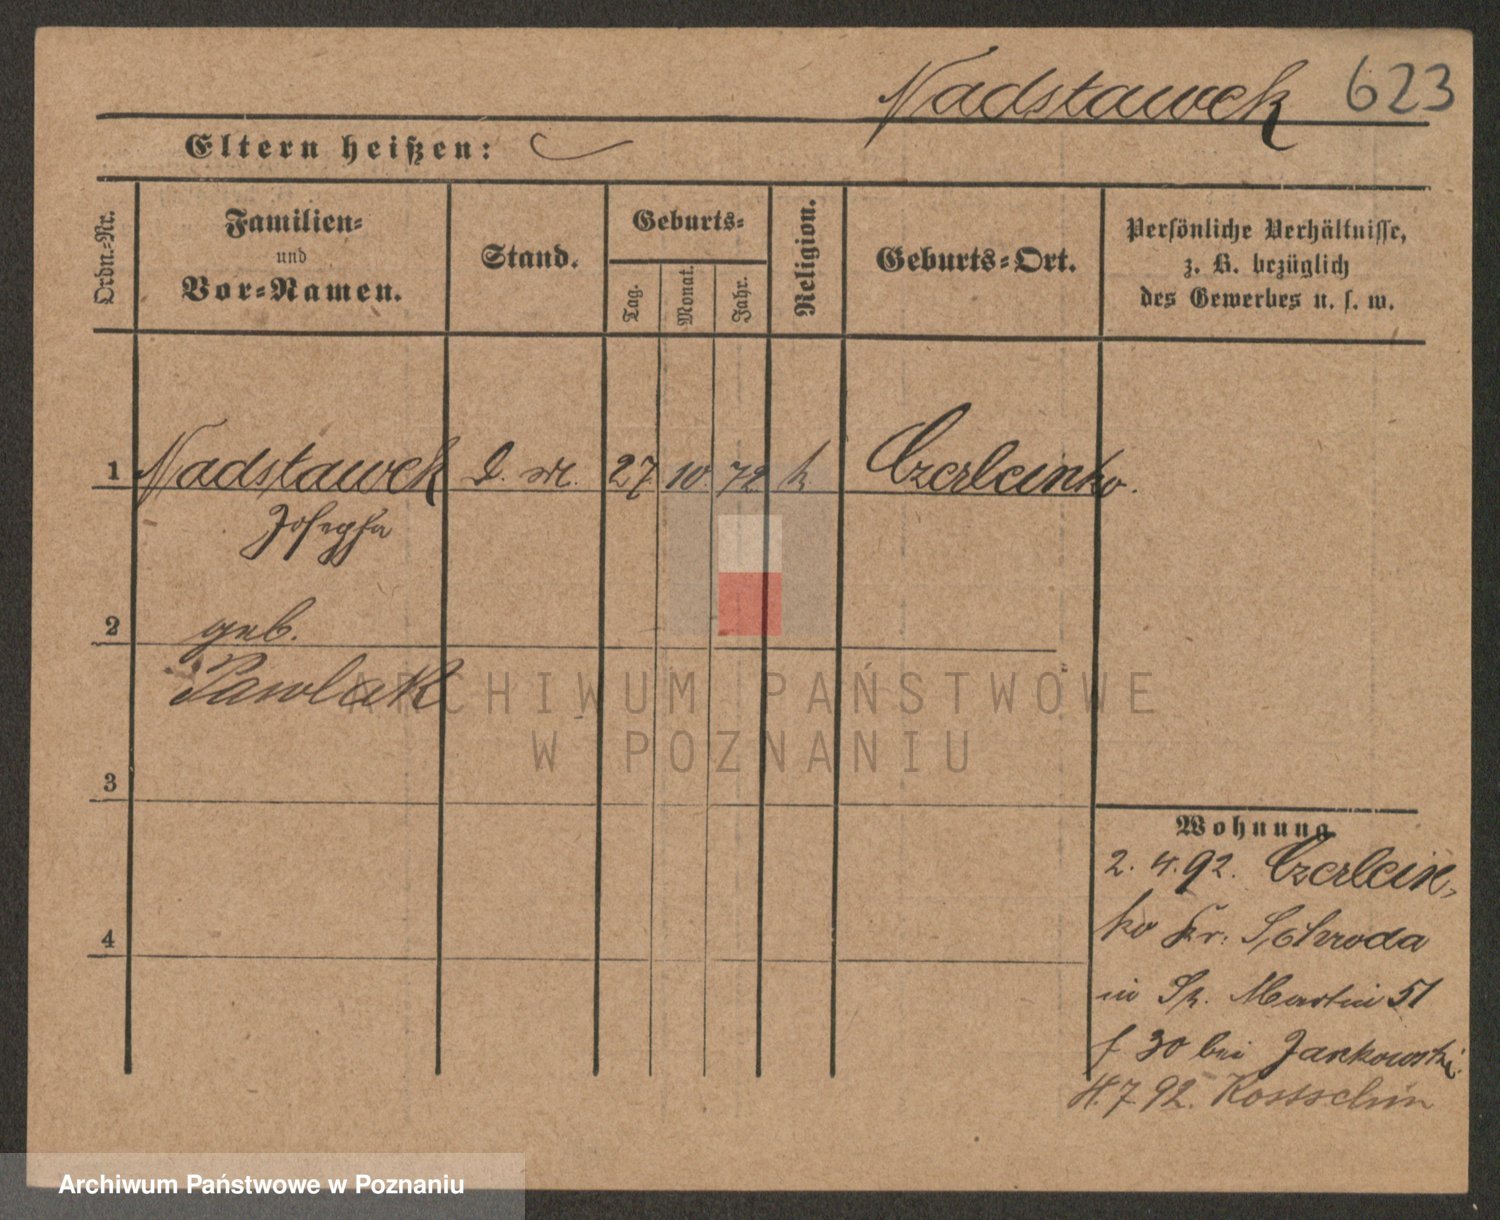 Nadstawek 623
Eltern heißen:
Ordn.-Nr.
Familien-
und
Vor-Namen.
Stand.
Geburts-
Tag.
Monat.
Jahr.
Religion.
Geburts-Ort.
Persönliche Verhältnisse,
z. B. bezüglich
des Gewerbes u. s. w.
1 Nadstawek D. M. 27. 10. 72 k Czerleinko.
Josepha
2 geb.
Pawlak
ARCHIWUM PAŃSTWOWE
W POZNANIU
3
Wohnung
2. 4. 92. Czerlein-
ko Kr. Schroda
in St. Martin 51
4
f 30 bei Jankowski.
4. 7. 92. Kostschin
Archiwum Państwowe w Poznaniu